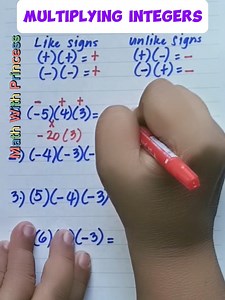 MULTIPLYING INTEGERS
Math With Princess
Like Signs
(+)(+) = +
(-)(-) = +
unlike signs
(+)(-) = -
(-)(+) = -
- + +
(-5)(4)(3) =
-20(3)
(-4)(-3)(-
3.) (5)(-4)(-3)
(6) (-3) =